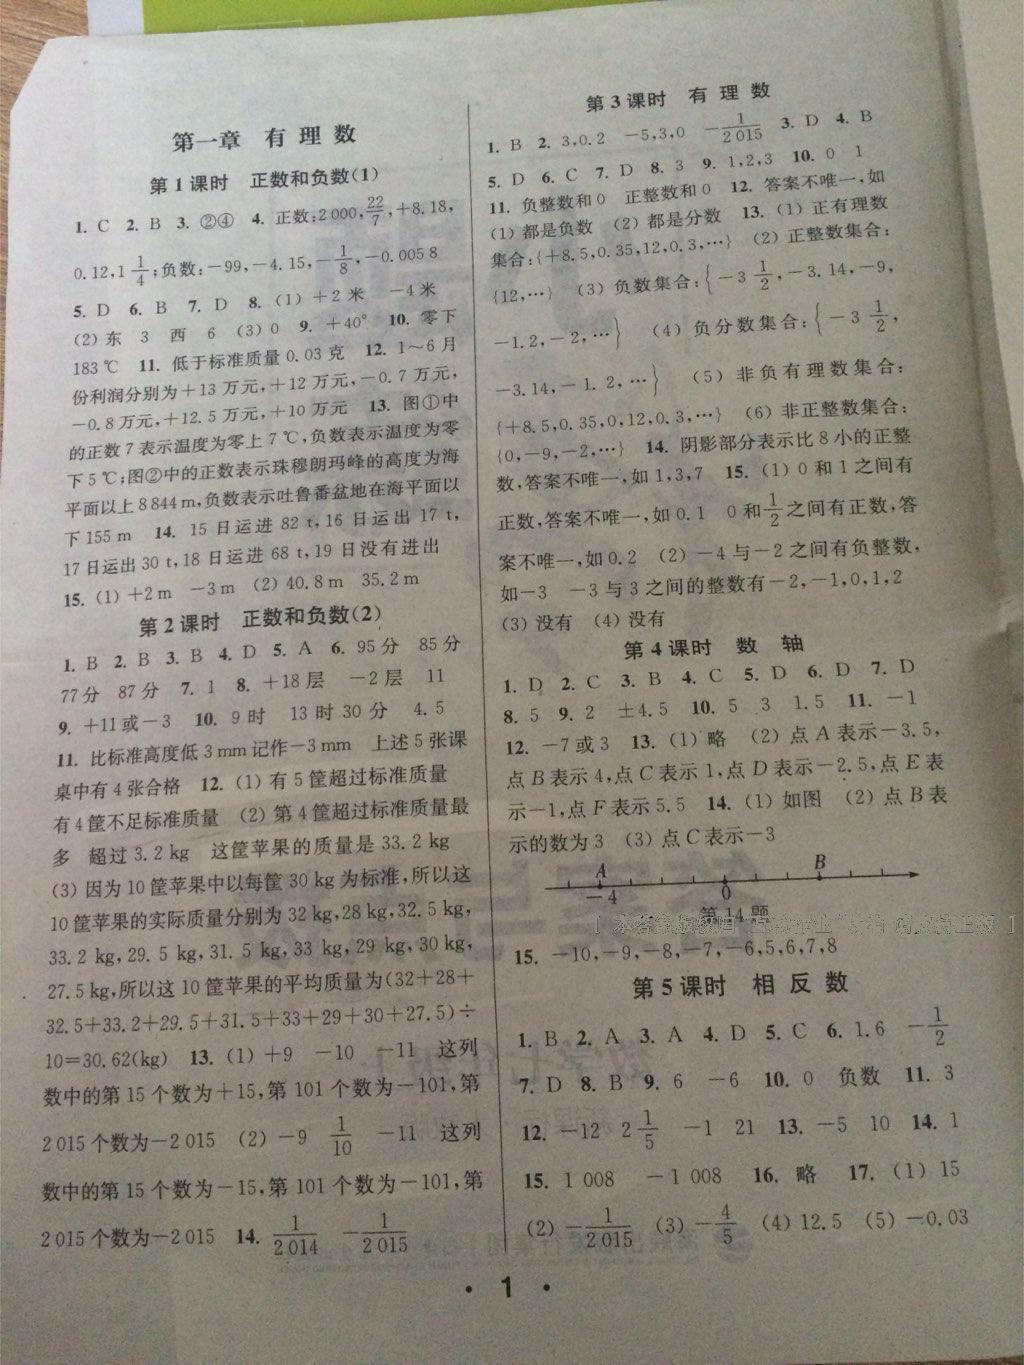 第一章 有理数
第1课时 正数和负数(1)
1. C 2. B 3. ②④ 4. 正数:2 000,22/7,+8.18,
0.12,1 1/4;负数:-99,-4.15,-1/8,-0.005 8
5. D 6. B 7. D 8. (1)+2米 -4米
(2)东 3 西 6 (3)0 9. +40° 10. 零下
183℃ 11. 低于标准质量0.03克 12. 1~6月
份利润分别为+13万元,+12万元,-0.7万元,
-0.8万元,+12.5万元,+10万元 13. 图①中
的正数7表示温度为零上7℃,负数表示温度为零
下5℃;图②中的正数表示珠穆朗玛峰的高度为海
平面以上8 844 m,负数表示吐鲁番盆地在海平面以
下155 m 14. 15日运进82 t,16日运出17 t,
17日运出30 t,18日运进68 t,19日没有进出
15. (1)+2 m -3 m (2)40.8 m 35.2 m
第2课时 正数和负数(2)
1. B 2. B 3. B 4. D 5. A 6. 95分 85分
77分 87分 7. 1 8. +18层 -2层 11
9. +11或-3 10. 9时 13时30分 4.5
11. 比标准高度低3 mm记作-3 mm 上述5张课
桌中有4张合格 12. (1)有5筐超过标准质量
有4筐不足标准质量 (2)第4筐超过标准质量最
多 超过3.2 kg 这筐苹果的质量是33.2 kg
(3)因为10筐苹果中以每筐30 kg为标准,所以这
10筐苹果的实际质量分别为32 kg,28 kg,32.5 kg,
33.2 kg,29.5 kg,31.5 kg,33 kg,29 kg,30 kg,
27.5 kg,所以这10筐苹果的平均质量为(32+28+
32.5+33.2+29.5+31.5+33+29+30+27.5)÷
10=30.62(kg) 13. (1)+9 -10 -11 这列
数中的第15个数为+15,第101个数为-101,第
2 015个数为-2 015 (2)-9 1/10 -11 这列
数中的第15个数为-15,第101个数为-101,第
2 015个数为-2 015 14. 1/2 014 -1/2 015
第3课时 有理数
1. B 2. 3,0.2 -5,3,0 -1/2 015 3. D 4. B
5. D 6. C 7. D 8. 3 9. 1,2,3 10. 0 1
11. 负整数和0 正整数和0 12. 答案不唯一,如
(1)都是负数 (2)都是分数 13. (1)正有理数
集合:{+8.5,0.35,12,0.3,…} (2)正整数集合:
{12,…} (3)负数集合:{-3 1/2,-3.14,-9,
-1.2,-2,…} (4)负分数集合:{-3 1/2,
-3.14,-1.2,…} (5)非负有理数集合:
{+8.5,0.35,0,12,0.3,…} (6)非正整数集合:
{0,-9,-2,…} 14. 阴影部分表示比8小的正整
数,答案不唯一,如1,3,7 15. (1)0和1之间有
正数,答案不唯一,如0.1 0和1/2之间有正数,答
案不唯一,如0.2 (2)-4与-2之间有负整数,
如-3 -3与3之间的整数有-2,-1,0,1,2
(3)没有 (4)没有
第4课时 数轴
1. D 2. C 3. B 4. C 5. D 6. D 7. D
8. 5 9. 2 ±4.5 10. 5 3 1.5 11. -1
12. -7或3 13. (1)略 (2)点A表示-3.5,
点B表示4,点C表示1,点D表示-2.5,点E表
示-1,点F表示5.5 14. (1)如图 (2)点B表
示的数为3 (3)点C表示-3
A B
-4 0
第14题
15. -10,-9,-8,-7,-6,5,6,7,8
第5课时 相反数
1. B 2. A 3. A 4. D 5. C 6. 1.6 -1/2
7. D 8. B 9. 6 -6 10. 0 负数 11. 3
12. -12 2 1/5 -1 21 13. -5 10 14. 1
15. 1 008 -1 008 16. 略 17. (1)15
(2)-1/2 015 (3)-4/5 (4)12.5 (5)-0.03
· 1 ·